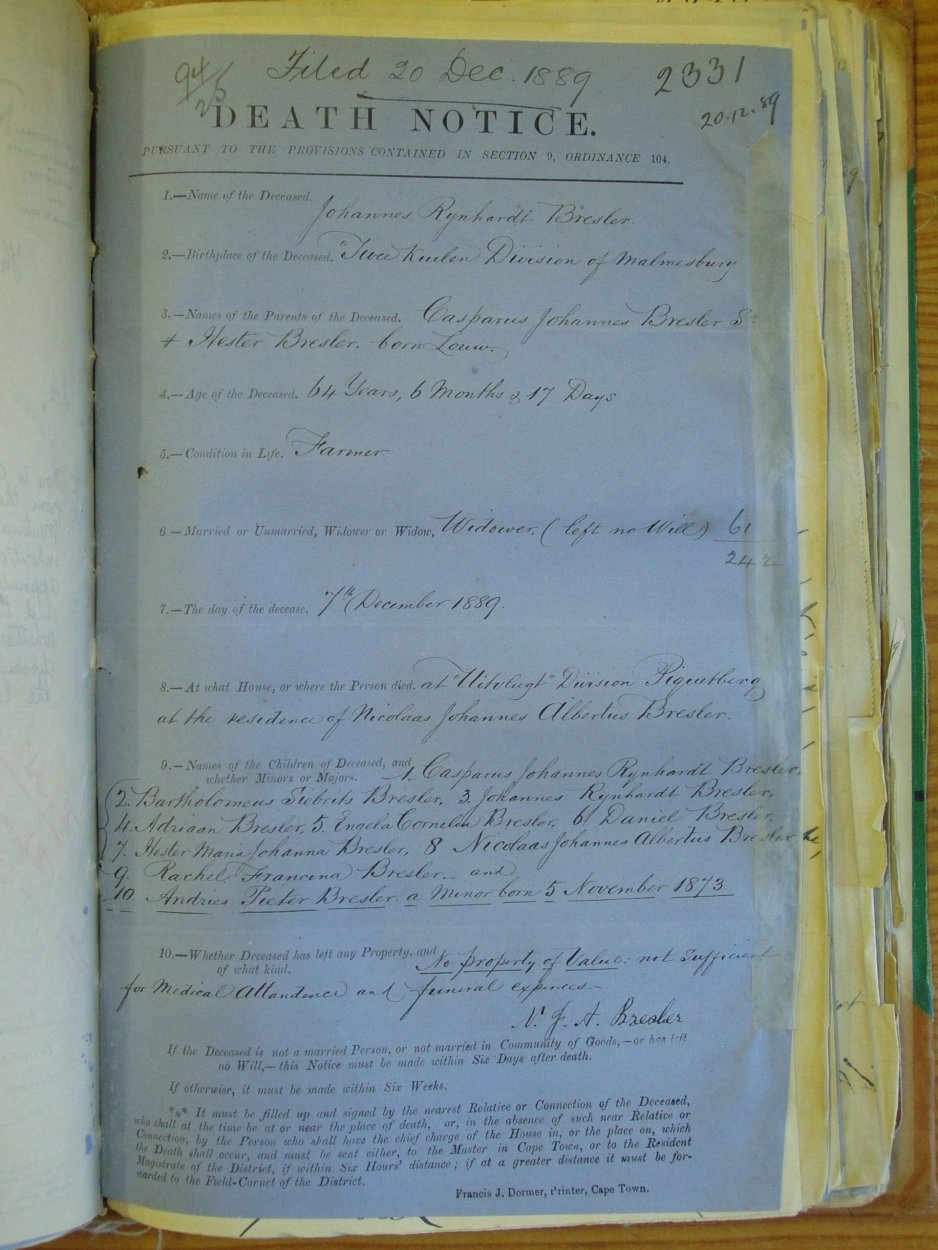 94/26 Filed 20 Dec. 1889 2331
20.12.89
DEATH NOTICE.
PURSUANT TO THE PROVISIONS CONTAINED IN SECTION 9, ORDINANCE 104.
1.—Name of the Deceased. Johannes Rynhardt Bresler
2.—Birthplace of the Deceased. "Twee Kuilen Division of Malmesbury
3.—Names of the Parents of the Deceased. Casparus Johannes Bresler
+ Hester Bresler. born Louw.
4.—Age of the Deceased. 64 Years, 6 Months & 17 Days
5.—Condition in Life. Farmer
6—Married or Unmarried, Widower or Widow. Widower. (left no Will) 61
242
7.—The day of the decease. 7th December 1889.
8.—At what House, or where the Person died. at "Uitvlugt" Division Piquetberg
at the residence of Nicolaas Johannes Albertus Bresler.
9.—Names of the Children of Deceased, and 1. Casparus Johannes Rynhardt Bresler,
whether Minors or Majors.
2. Bartholomeus Siebrits Bresler, 3. Johannes Rynhardt Bresler,
4. Adriaan Bresler, 5. Engela Cornelia Bresler, 6 Daniel Bresler,
7. Hester Maria Johanna Bresler, 8 Nicolaas Johannes Albertus Bresler
9. Rachel Francina Bresler.— and
10 Andries Pieter Bresler a Minor born 5 November 1873
10.—Whether Deceased has left any Property, and No property of Value: not Sufficient
of what kind.
for Medical Attandence and funeral expences.—
N. J. A. Bresler
If the Deceased is not a married Person, or not married in Community of Goods,—or has left
no Will,—this Notice must be made within Six Days after death.
If otherwise, it must be made within Six Weeks.
*** It must be filled up and signed by the nearest Relative or Connection of the Deceased,
who shall at the time be at or near the place of death, or, in the absence of such near Relative or
Connection, by the Person who shall have the chief charge of the House in, or the place on, which
the Death shall occur, and must be sent either, to the Master in Cape Town, or to the Resident
Magistrate of the District, if within Six Hours' distance; if at a greater distance it must be for-
warded to the Field-Cornet of the District.
Francis J. Dormer, Printer, Cape Town.